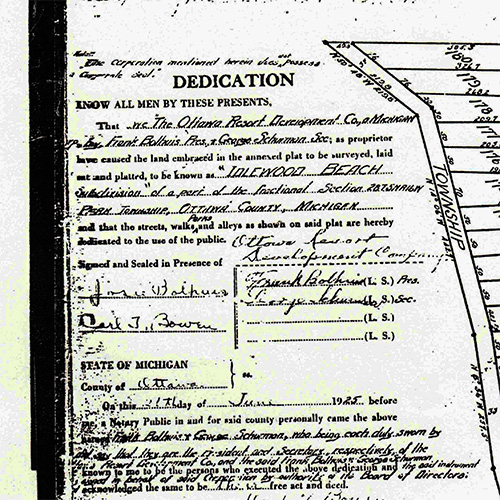 Note:
"The Corporation mentioned herein does not possess
a Corporate Seal."
DEDICATION
KNOW ALL MEN BY THESE PRESENTS,
That we The Ottawa Resort Development Co., a Michigan
by Frank Bolhuis Pres. & George Schurman Sec; as proprietor
have caused the land embraced in the annexed plat to be surveyed, laid
out and platted, to be known as "IDLEWOOD BEACH
Subdivision" of a part of the fractional Section
PARK TOWNSHIP, OTTAWA COUNTY, MICHIGAN
and that the streets, walks, Parks and alleys as shown on said plat are hereby
dedicated to the use of the public. Ottawa Resort
Development Company
Signed and Sealed in Presence of
Frank Bolhuis (L. S.) Pres.
Bolhuis
George Schurman (L. S.) Sec.
Carl T. Bowen
(L. S.)
(L. S.)
STATE OF MICHIGAN
County of Ottawa
ss.
On this day of June 1925 before
a Notary Public in and for said county personally came the above
named Frank Bolhuis & George Schurman, who being each duly sworn by
say that they are the President and Secretary respectively of the
Resort Development Co., and the said Frank Bolhuis & George Schurman
known to me to be the persons who executed the above dedication and the said instrument
in behalf of said Corporation by authority of its Board of Directors;
acknowledged the same to be free act and deed.
TOWNSHIP